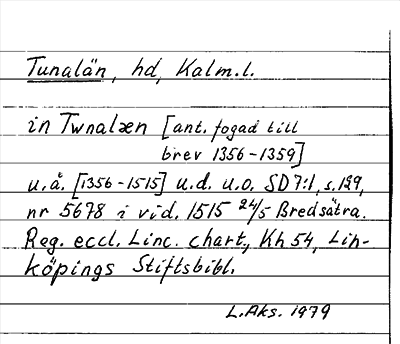 Tunalän, hd, Kalm.l.
in Twnalæn [ant. fogad till
brev 1356-1359]
u.å. [1356-1515] u.d. u.o. SD 7:1, s.129,
nr 5678 i vid. 1515 24/5 Bredsätra.
Reg. eccl. Linc. chart., Kh 54, Lin-
köpings Stiftsbibl.
L.Aks. 1979